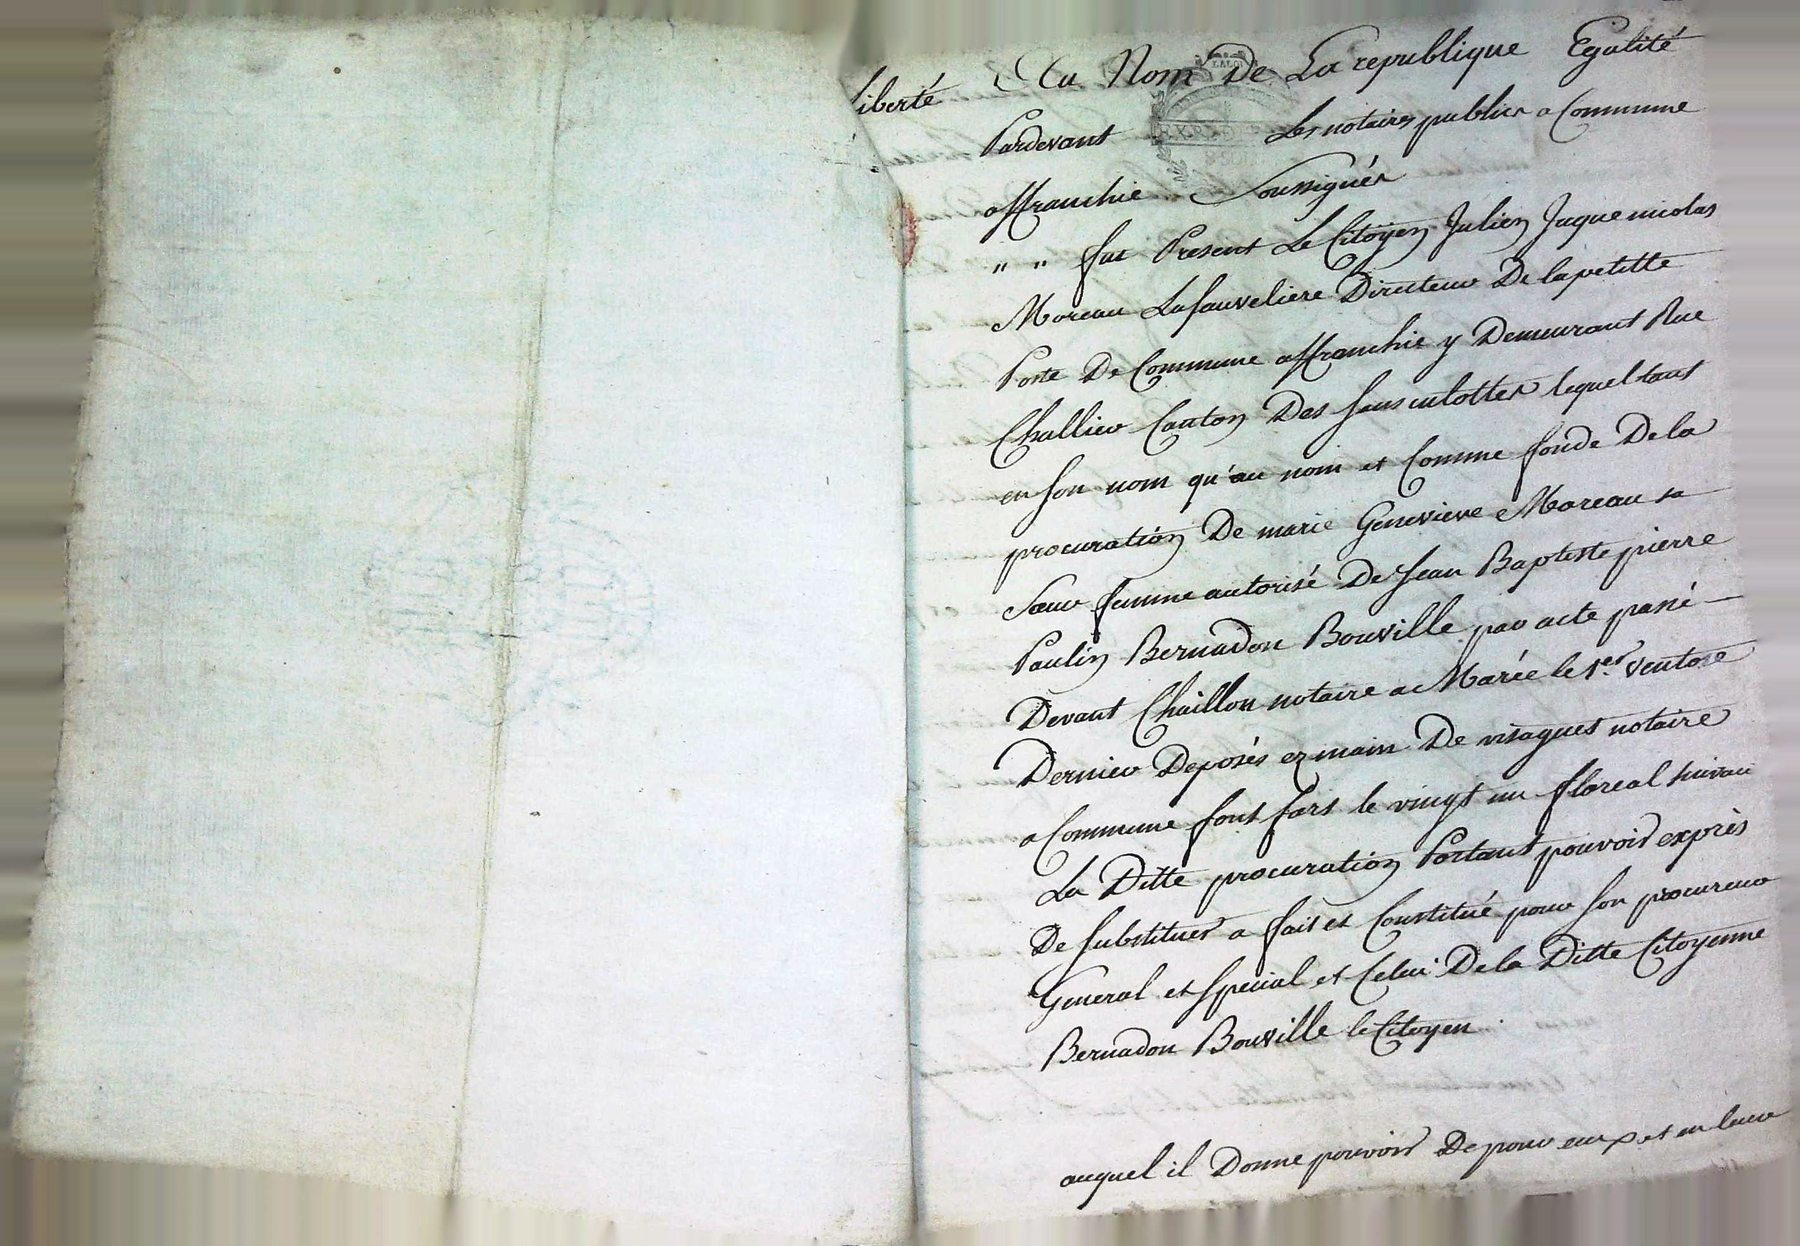 Liberté Au Nom De La republique Egalité
Pardevant Les notaires publics a Commune
affranchie Soussignés
" " fut Present Le Citoyen Julien Jaque nicolas
Moreau Lafauveliere Directeur De la petitte
Poste De Commune affranchie y Demeurant Rue
Challier Canton Des Sansculottes lequel tant
en son nom qu'au nom et Comme fondé De la
procuration De marie Genevieve Moreau sa
Soeur femme autorisé De Jean Baptiste pierre
Paulin Bernadon Bouville par acte passé
Devant Chaillon notaire a le 1.er ventose
Dernier Deposés en main De visagues notaire
a Commune le vingt un floreal suivan
La Ditte procuration Portant pouvoir exprès
De substituer a fait et Constitué pour son procureur
General et Special et Celui De la Ditte Citoyenne
Bernadon Bouville le Citoyen
auquel il Donne pouvoir De pour eux et en leur